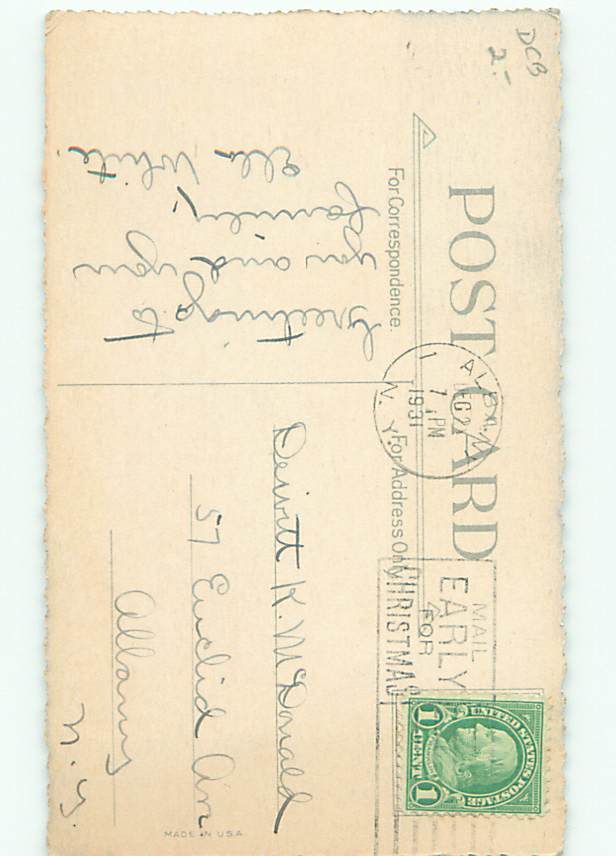 DCB
2.-
POST CARD
For Correspondence.
For Address Only
Greetings to
you and your
family,
White
ALBANY
DEC 2
7 PM
1931
N. Y.
1
MAIL
EARLY
FOR
CHRISTMAS
UNITED STATES POSTAGE
1 CENT 1
Dewitt K. McDonald
57 Euclid Ave
Albany
N. Y.
MADE IN U.S.A.